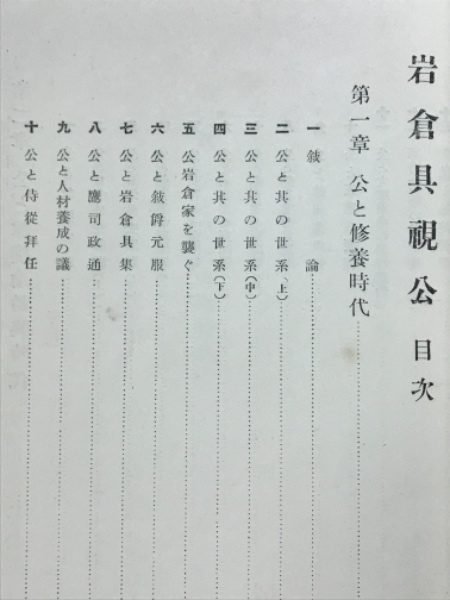 岩倉具視公 目次
第一章 公と修養時代
一 敍論
二 公と其の世系(上)
三 公と其の世系(中)
四 公と其の世系(下)
五 公岩倉家を襲ぐ
六 公と敍爵元服
七 公と岩倉具集
八 公と鷹司政通
九 公と人材養成の議
十 公と侍從拜任